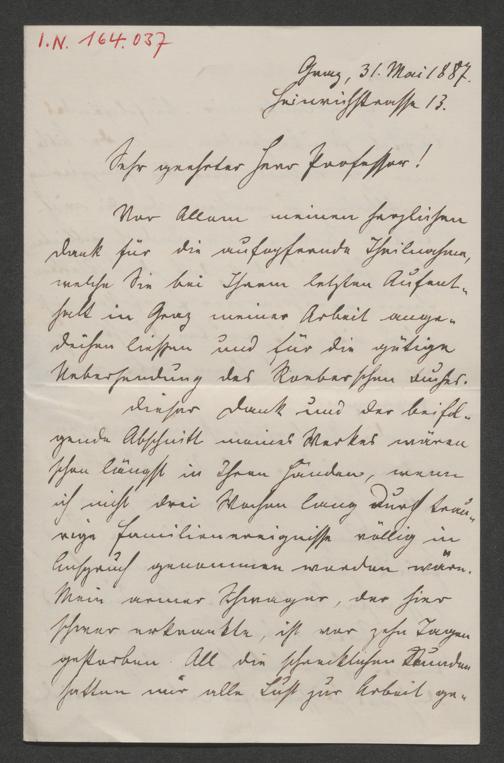 I.N. 164.037
Graz, 31. Mai 1887.
Heinrichstrasse 13.
Sehr geehrter Herr Professor!
Vor Allem meinen herzlichen
Dank für die aufopfernde Theilnahme,
welche Sie bei Ihrem letzten Aufent-
halt in Graz meiner Arbeit ange-
deihen liessen und für die gütige
Uebersendung des Roeber'schen Buches.
Dieser Dank und der beifol-
gende Abschnitt meines Werkes wären
schon längst in Ihren Händen, wenn
ich nicht drei Wochen lang durch trau-
rige Familienereignisse völlig in
Anspruch genommen worden wäre.
Mein armer Schwager, der hier
schwer erkrankte, ist vor zehn Tagen
gestorben. All die schrecklichen Stunden
hatten mir alle Lust zur Arbeit ge-